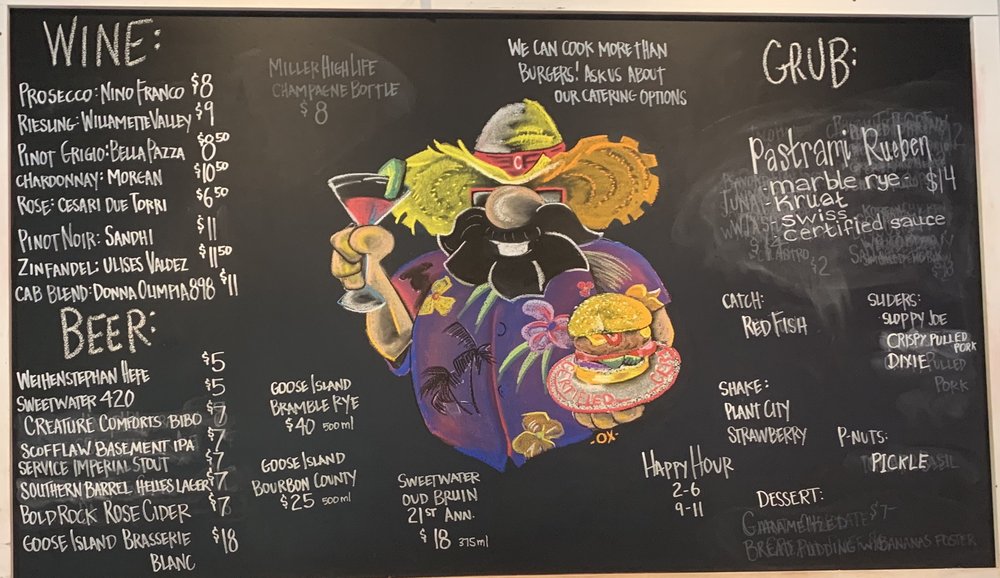 WINE:
PROSECCO: NINO FRANCO $8
RIESLING: WILLAMETTE VALLEY $9
PINOT GRIGIO: BELLA PAZZA $8.50
CHARDONNAY: MORGAN $10.50
ROSE: CESARI DUE TORRI $6.50
PINOT NOIR: SANDHI $11
ZINFANDEL: ULISES VALDEZ $11.50
CAB BLEND: DONNA OLIMPIA 898 $11
BEER:
WEIHENSTEPHAN HEFE $5
SWEETWATER 420 $5
CREATURE COMFORTS BIBO $7
SCOFFLAW BASEMENT IPA $7
SERVICE IMPERIAL STOUT $7
SOUTHERN BARREL HELLES LAGER $7
BOLD ROCK ROSE CIDER $7
GOOSE ISLAND BRASSERIE $18
BLANC
MILLER HIGH LIFE
CHAMPAGNE BOTTLE
$8
GOOSE ISLAND
BRAMBLE RYE
$40 500ml
GOOSE ISLAND
BOURBON COUNTY
$25 500ml
SWEETWATER
OUD BRUIN
21ST ANN.
$18 375ml
WE CAN COOK MORE THAN
BURGERS! ASK US ABOUT
OUR CATERING OPTIONS
C
CERTIFIED
-OX-
HAPPY HOUR
2-6
9-11
GRUB:
Pastrami Rueben
-marble rye- $14
-Kruat
swiss
certified sauce
CILANTRO $2
CATCH:
RED FISH
SLIDERS:
SLOPPY JOE
CRISPY PULLED
PORK
DIXIE PULLED
PORK
SHAKE:
PLANT CITY
STRAWBERRY
P-NUTS:
PICKLE
DESSERT:
$7-
BREAD PUDDING W/ BANANAS FOSTER